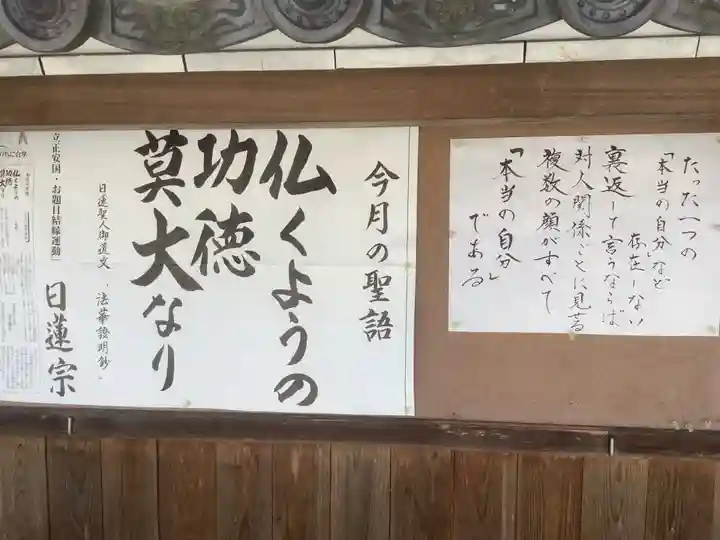 たった一つの
「本当の自分」など
存在しない
裏返して言うならば
対人関係ごとに見せる
複数の顔がすべて
「本当の自分」
である
今月の聖語
仏くようの
功徳
莫大なり
日蓮聖人御遺文 「法華證明鈔」
立正安国・お題目結縁運動
日蓮宗
仏くようの
功徳
莫大なり